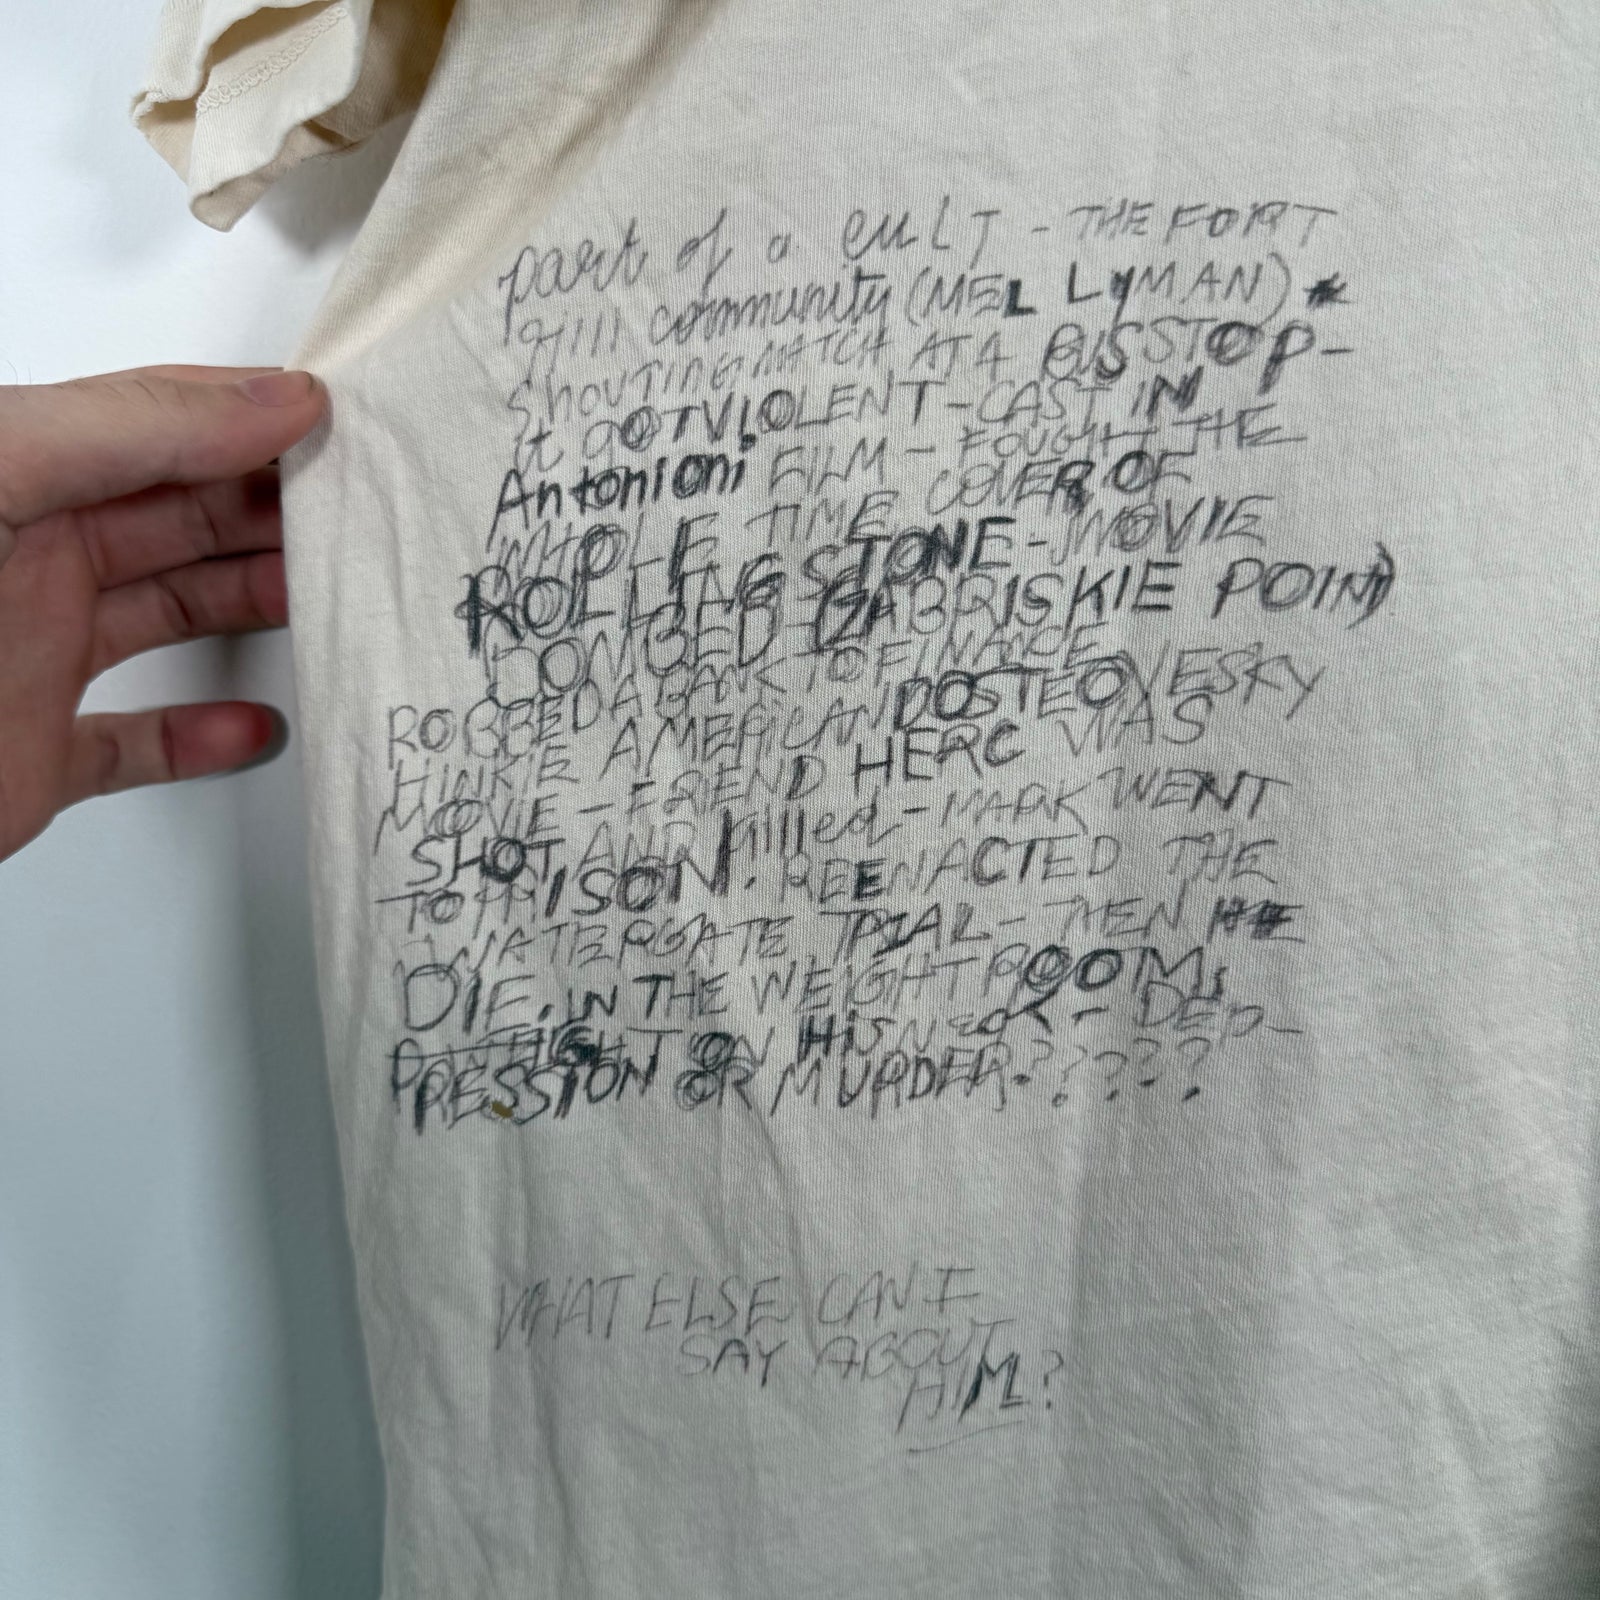 part of a cULT - THE FORT
Hill community (MEL LYMAN) *
ShOUTING MATCH AT A BUS STOP-
it GOT VIOLENT - CAST IN
Antonioni FILM - FOUGHT THE
WHOLE TIME COVER OF
ROLLING STONE - MOVIE
BOMBED (ZABRISKIE POINT)
ROBBED A BANK TO FINANCE
HINKIE AMERICAN DOSTEOVESKY
MOVIE - FRIEND HERC WAS
SHOT AND killed - MARK WENT
TO PRISON. REENACTED THE
WATERGATE TRIAL - THEN HE
DIE. IN THE WEIGHT ROOM,
WEIGHT ON HIS NECK - DEP-
PRESSION OR MURDER?????
WHAT ELSE CAN I
SAY ABOUT
HIM?